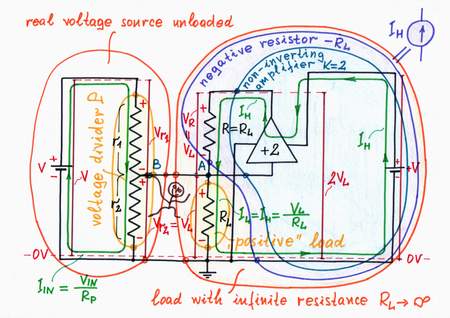 real voltage source unloaded
I_H
negative resistor -R_L
non-inverting
amplifier K=2
voltage divider
r1
r2
V
V
V_r1
V_r2 =
B
A
V_R
V_L
V_L
I_H
R=R_L
+2
I_H
2V_L
V
R_L
I_L = I_H = V_L / R_L
"positive" load
-0V
0V-
I_IN = V_IN / R_P
load with infinite resistance R_L → ∞